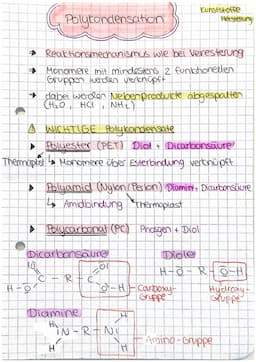 Polykondensation
Kunststoffe
Herstellung
→ Reaktionsmechanismus wie bei Veresterung
→ Monomere mit mindestens 2 funktionellen
Gruppen werden verknüpft
→ dabei werden Nebenprodukte abgespalten
(H₂O, HCl, NH₃)
⚠ WICHTIGE Polykondensate
▶ Polyester (PET) Diol + Dicarbonsäure
Thermoplast ↳ Monomere über Esterbindung verknüpft
▶ Polyamid (Nylon/Perlon) Diamin + Dicarbonsäure
↳ Amidbindung Thermoplast
▶ Polycarbonat (PC) Phosgen + Diol
Dicarbonsäure
Diole
C - R - C
H-O
O-H
Carboxy-
Gruppe
H-O-R-O-H
Hydroxy-
Gruppe
Diamine
H
N-R-N
H
Amino-Gruppe